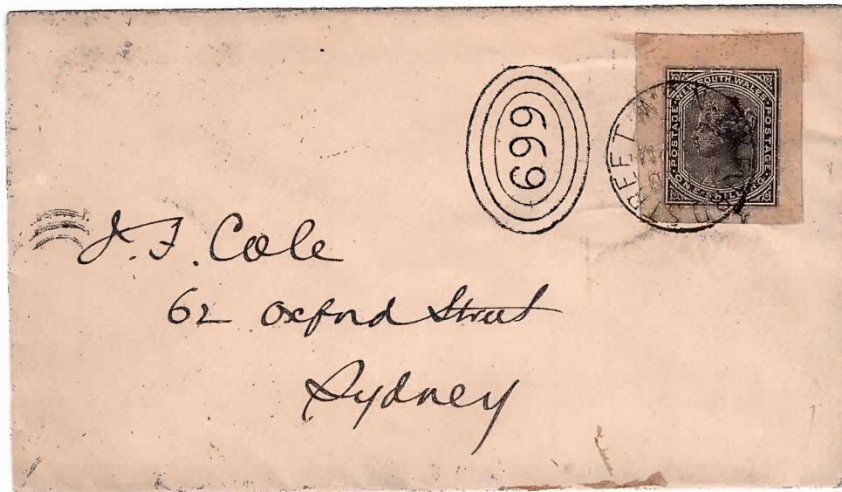 669
STREET
NEW SOUTH WALES
POSTAGE
POSTAGE
ONE SHILLING
J. F. Cole
62 Oxford Street
Sydney